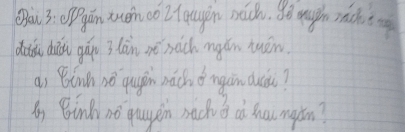 Bài 3: Ngăn trên có 21 quyển sách. Số quyển sách ở ngăn
dưới gấp 3 lần số sách ngăn trên.
a) Tính số quyển sách ở ngăn dưới?
b) Tính số quyển sách ở cả hai ngăn?